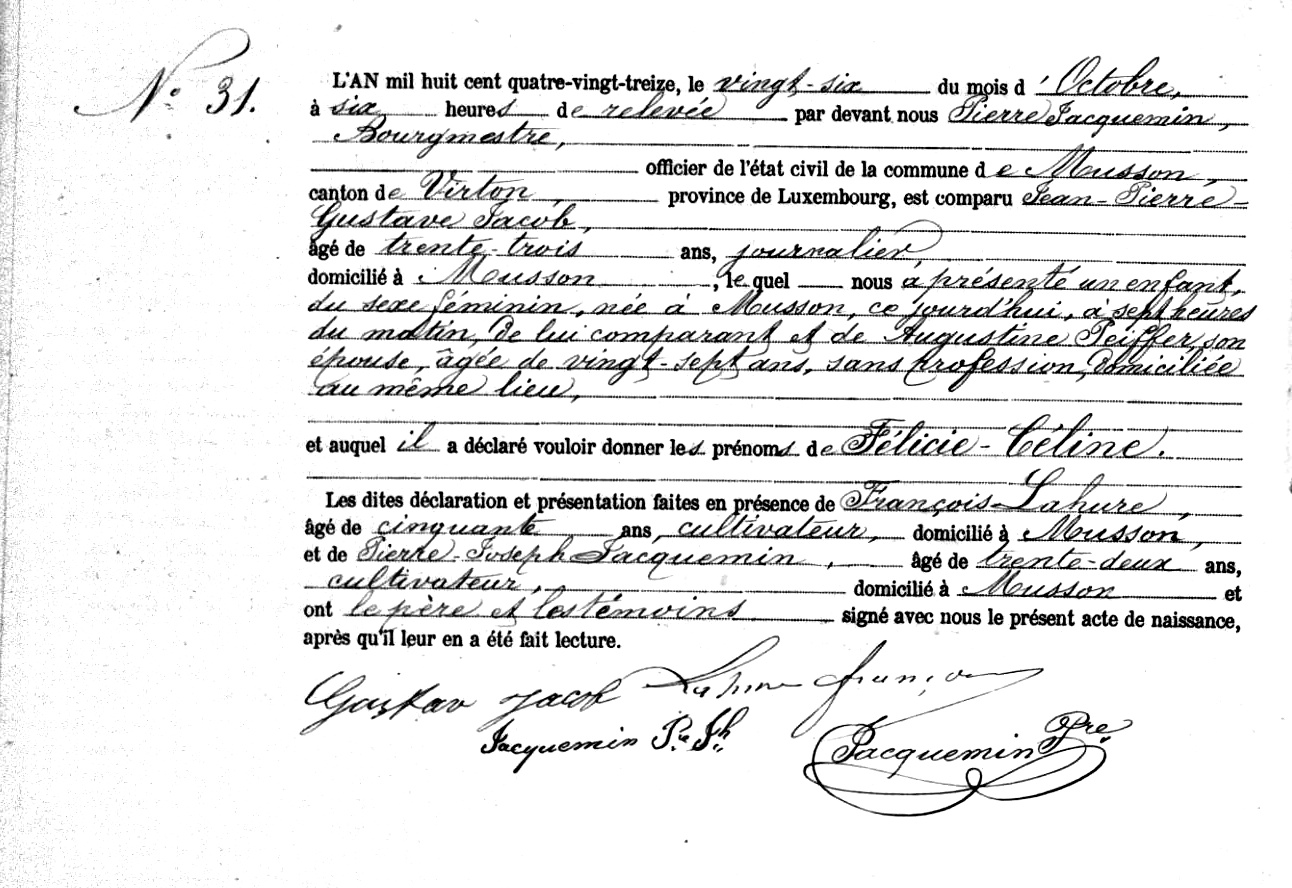 N° 31.
L'AN mil huit cent quatre-vingt-treize, le vingt-six du mois d'Octobre,
à six heures de relevée par devant nous Pierre Jacquemin,
Bourgmestre,
officier de l'état civil de la commune de Musson,
canton de Virton, province de Luxembourg, est comparu Jean-Pierre-
Gustave Jacob,
âgé de trente-trois ans, journalier,
domicilié à Musson, lequel nous a présenté un enfant,
du sexe féminin, née à Musson, ce jourd'hui, à sept heures
du matin, de lui comparant et de Augustine Peiffer, son
épouse, âgée de vingt-sept ans, sans profession, domiciliée
au même lieu,
et auquel il a déclaré vouloir donner les prénoms de Félicie-Céline.
Les dites déclaration et présentation faites en présence de François Lahure,
âgé de cinquante ans, cultivateur, domicilié à Musson,
et de Pierre-Joseph Jacquemin, âgé de trente-deux ans,
cultivateur, domicilié à Musson et
ont le père et les témoins signé avec nous le présent acte de naissance,
après qu'il leur en a été fait lecture.
Gustav Jacob Lahure françois
Jacquemin Pre Jh Jacquemin Pre